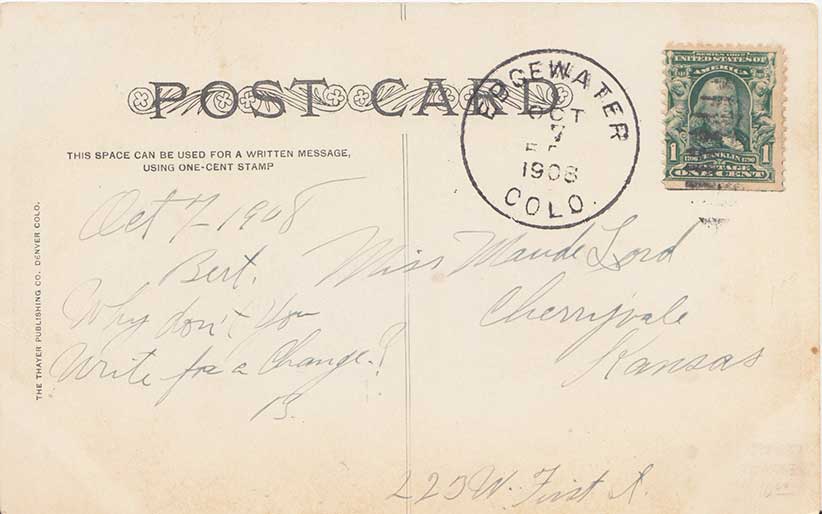 POST CARD
THIS SPACE CAN BE USED FOR A WRITTEN MESSAGE,
USING ONE-CENT STAMP
THE THAYER PUBLISHING CO. DENVER COLO.
EDGEWATER
OCT
7
1908
COLO.
SERIES 1902
UNITED STATES OF
AMERICA
1706 FRANKLIN 1790
1 POSTAGE 1
ONE CENT
Oct 7-1908
Bert.
Why don't you
Write for a Change?
B.
Miss Maude Lord
Cherryvale
Kansas
223 W. First St.